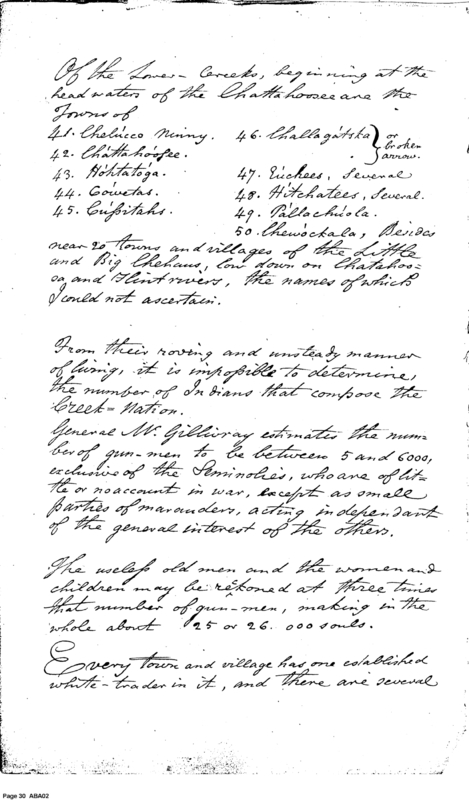 Of the Lower-Creeks, beginning at the
head waters of the Chattahoosee are the
Towns of
41. Chelúcco Ninny.
42. Cháttahóosee.
43. Hóhtatóga.
44. Cówetas.
45. Cússitahs.
46. Challagátska } or broken arrow.
47. Eúchees, Several
48. Hítchatees, Several.
49. Pállachúola.
50. Chewóckala, Besides
near 20 towns and villages of the Little
and Big Chehaus, low down on Chatahoo=
sa and Flint rivers, the names of which
I could not ascertain.
From their roving and unsteady manner
of living, it is impossible to determine,
the number of Indians that compose the
Creek=Nation.
General Mc Gillivray estimates the num-
ber of gun-men to be between 5 and 6000,
exclusive of the Siminolies, who are of lit-
tle or no account in war, except as small
parties of marauders, acting independant
of the general interest of the others.
The useless old men and the women and
children may be rekoned at three times
that number of gun-men, making in the
whole about 25 or 26.000 souls.
Every town and village has one established
white-trader in it, and there are several
Page 30 ABA02